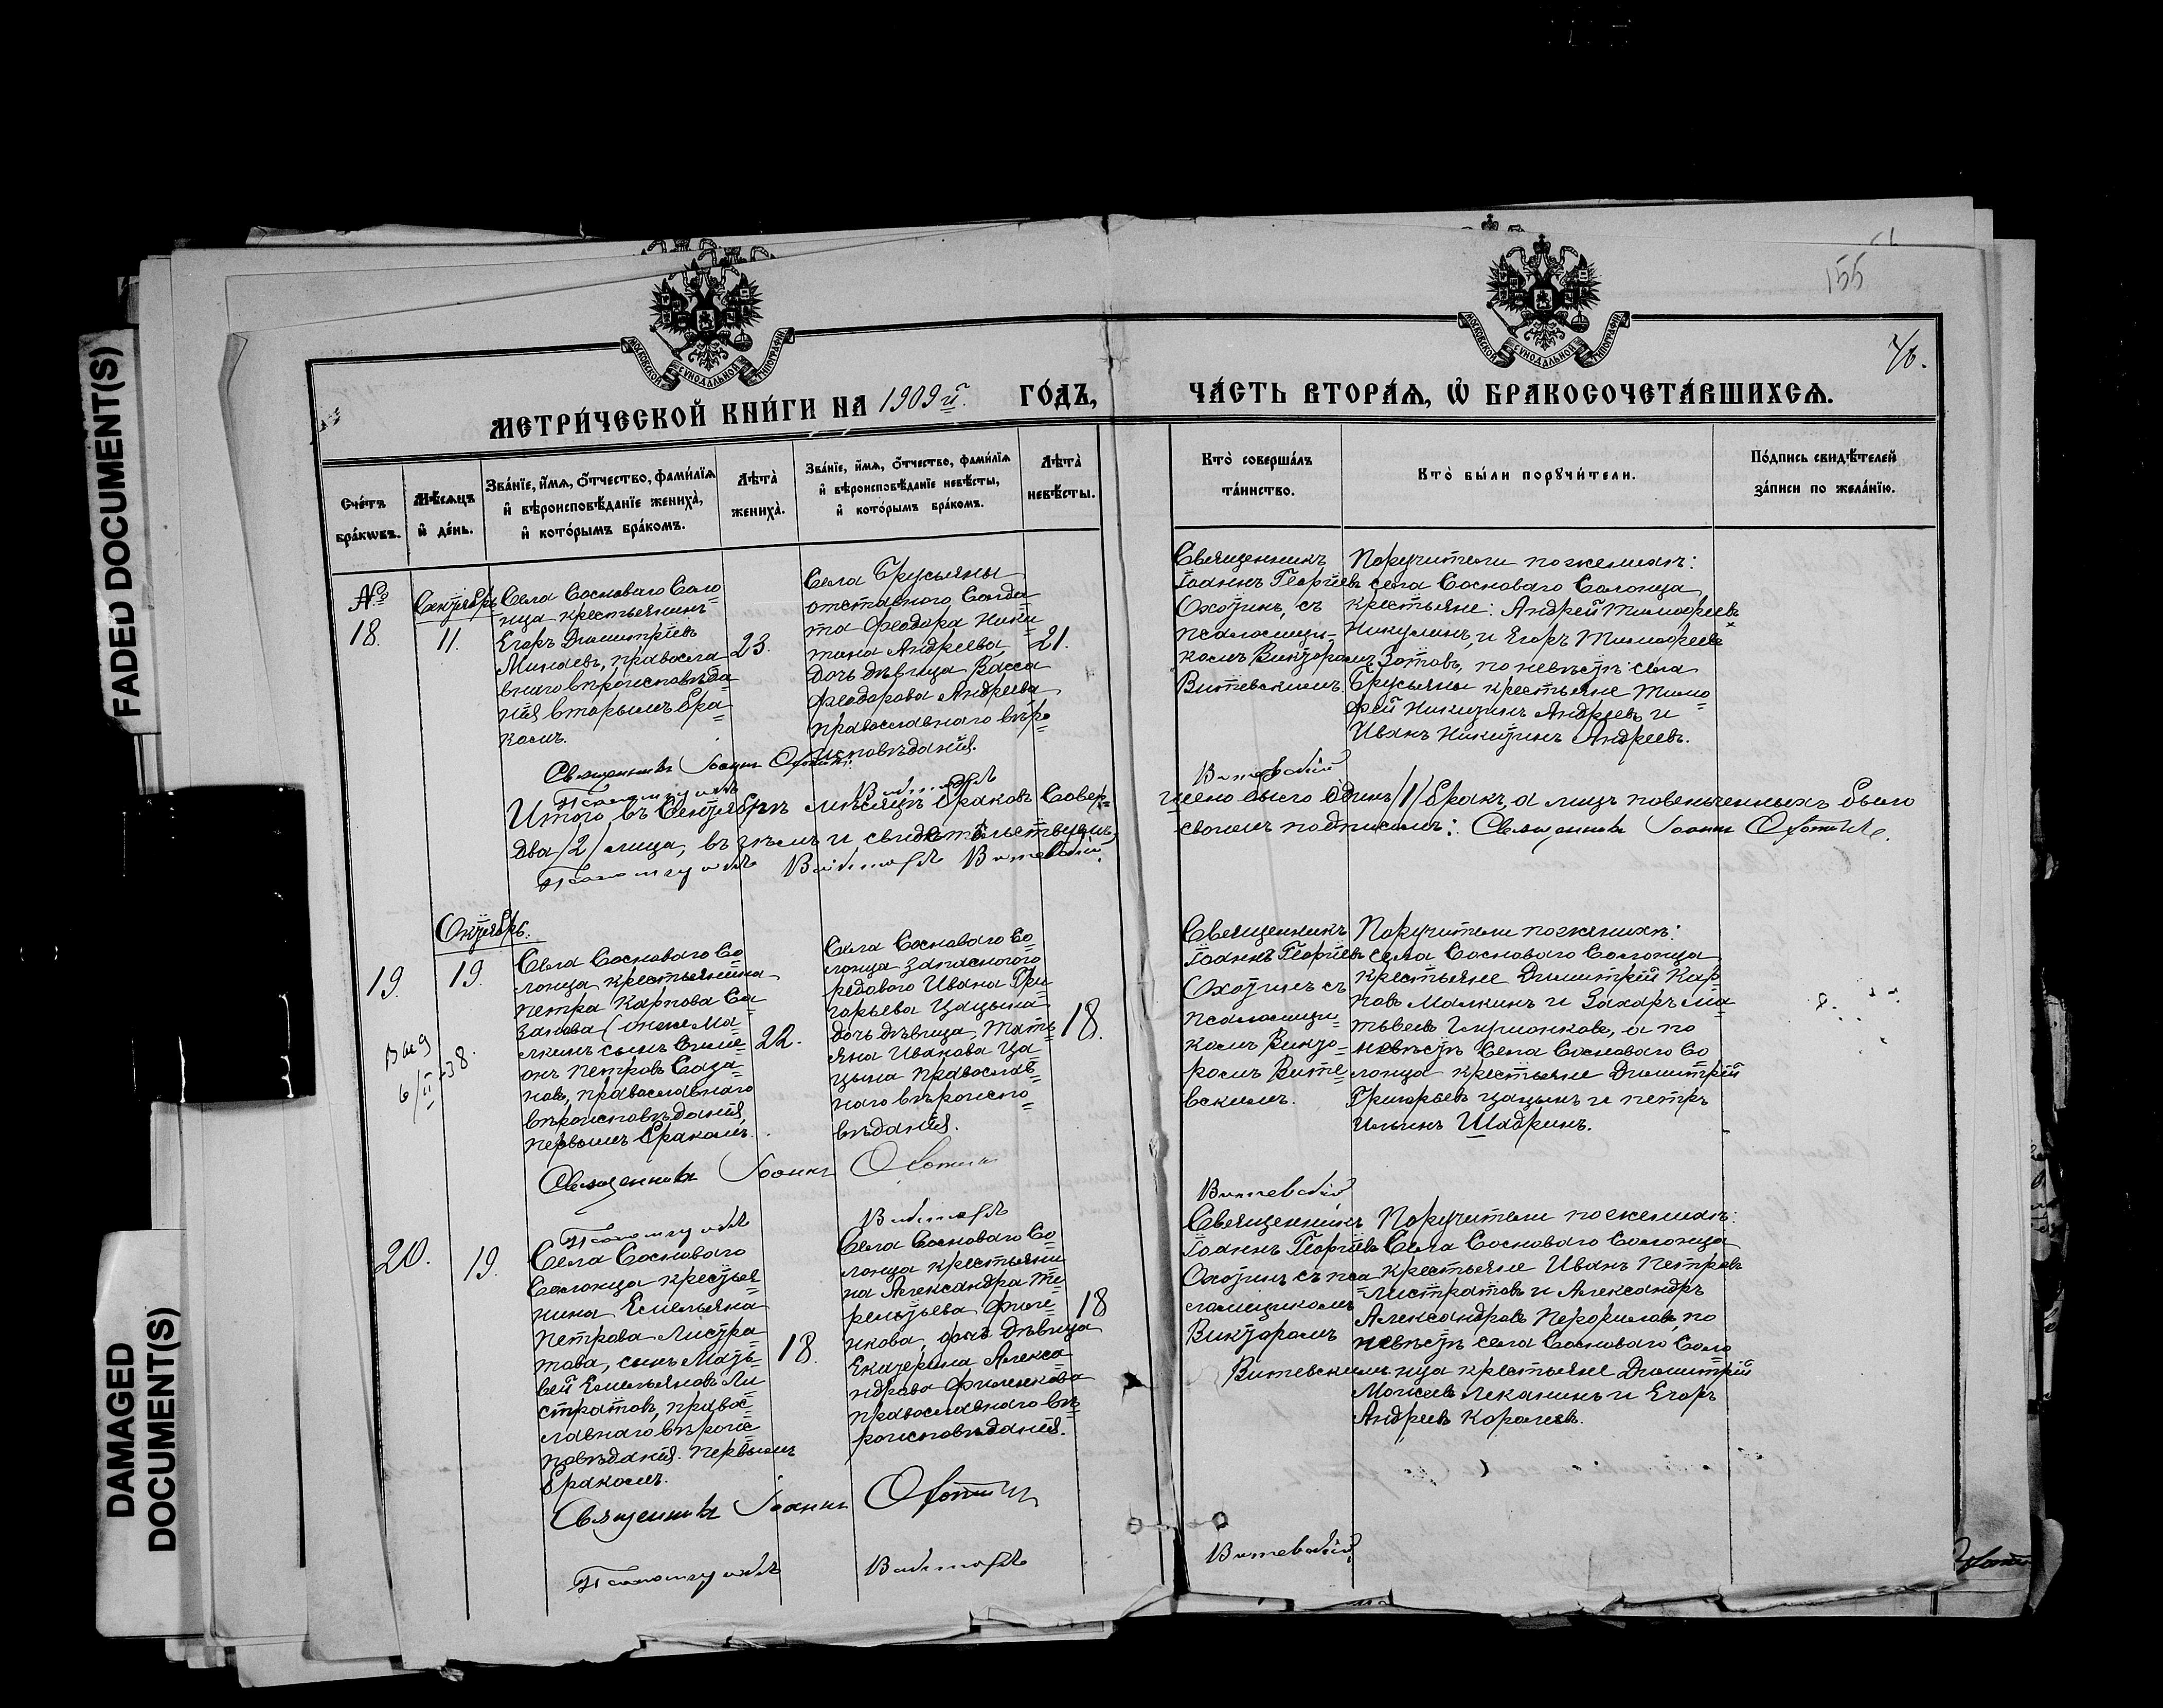 FADED DOCUMENT(S)
DAMAGED
DOCUMENT(S)
155
МОСКОВСКОЙ СУНОДАЛЬНОЙ ТИПОГРАФІИ
МОСКОВСКОЙ СУНОДАЛЬНОЙ ТИПОГРАФІИ
МЕТРИ́ЧЕСКОЙ КНИ́ГИ НА 1909й. ГО́ДЪ,
ЧА́СТЬ ВТОРА́Ѧ, Ѡ҆ БРАКОСОЧЕТА́ВШИХСѦ.
Сче́тъ
бра́кѡвъ.
Мѣ́сѧцъ
и҆ де́нь.
Зва́нїе, и҆́мѧ, ѻ҆́тчество, фами́лїѧ
и҆ вѣроисповѣ́данїе жениха̀,
и҆ кото́рымъ бра́комъ.
Лѣ́та
жениха̀.
Зва́нїе, и҆́мѧ, ѻ҆́тчество, фами́лїѧ
и҆ вѣроисповѣ́данїе невѣ́сты,
и҆ кото́рымъ бра́комъ.
Лѣ́та
невѣ́сты.
Кто̀ соверша́лъ
та́инство.
Кто̀ бы́ли порꙋчи́тели.
По́дпись свидѣ́телей
за́писи по жела́нїю.
№
18.
Сентябрь
11.
Села Сосноваго Соло
нца крестьянинъ
Егоръ Димитріевъ
Минаевъ, правосла
внаго вѣроисповѣда
нія вторымъ бра
комъ.
23.
Села Брусьяны
отставного Солда
та Феодора Ники
тина Андреева
дочь дѣвица Васса
Феодорова Андреева
православнаго вѣро
исповѣданія.
21.
Священникъ
Іоаннъ Георгіевъ
Охотинъ, съ
псаломщи
комъ Викторомъ
Витевскимъ.
Поручители по женихѣ:
села Сосноваго Солонца
крестьяне: Андрей Тимофеевъ
Никулинъ, и Егоръ Тимофеевъ
Зотовъ, по невѣстѣ: села
Брусьяны крестьяне Тимо
фей Никитинъ Андреевъ и
Иванъ Никитинъ Андреевъ.
Священникъ Іоаннъ Охотинъ.
Псаломщикъ Викторъ Витевскій
Итого въ Сентябрѣ мѣсяцѣ браковъ Совер
шено было Одинъ /1/ бракъ, а лицъ повенченныхъ было
два /2/ лица, въ чѣмъ и свидѣтельствуемъ
своимъ подписомъ: Священникъ Іоаннъ Охотинъ.
Псаломщикъ Викторъ Витевскій.
Октябрь.
19.
19.
Села Сосноваго Со
лонца крестьянина
Петра Карпова Са
занова (онже Ма
лкинъ сынъ Симе
онъ Петровъ Саза
новъ, православнаго
вѣроисповѣданія,
первымъ бракомъ.
22.
Села Сосноваго Со
лонца запасного
рядового Ивана Гри
горьева Цацына
дочь дѣвица Тать
яна Иванова Ца
цына православ
наго вѣроиспо
вѣданія.
18.
Священникъ
Іоаннъ Георгіевъ
Охотинъ съ
псаломщи
комъ Викто
ромъ Вите
вскимъ.
Поручители по женихѣ:
села Сосноваго Солонца
крестьяне Димитрій Кар
повъ Малкинъ и Захаръ Ма
твеевъ а по
невѣстѣ Села Сосноваго Со
лонца крестьяне Димитрій
Григорьевъ Цацынъ и Петръ
Ильинъ Шадринъ.
6/II-38.
Священникъ Іоаннъ Охотинъ
Псаломщикъ Викторъ Витевскій
20.
19.
Села Сосноваго
Солонца крестья
нина Емельяна
Петрова Листра
това, сынъ Мать
вей Емельяновъ Ли
стратовъ, правос
лавнаго вѣроис
повѣданія. первымъ
бракомъ.
18.
Села Сосноваго Со
лонца крестьяни
на Александра Те
рентьева Филе
нкова, дочь дѣвица
Екатерина Алекса
ндрова Филенкова
православнаго вѣ
роисповѣданія.
18
Священникъ
Іоаннъ Георгіевъ
Охотинъ съ пса
ломщикомъ
Викторомъ
Витевскимъ
Поручители по женихѣ:
Села Сосноваго Солонца
крестьяне Иванъ Петровъ
Листратовъ и Александръ
Александровъ Перфиловъ, по
невѣстѣ села Сосноваго Соло
нца крестьяне Димитрій
Моисеевъ Леканинъ и Егоръ
Андреевъ Королевъ.
Священникъ Іоаннъ Охотинъ
Псаломщикъ Викторъ Витевскій